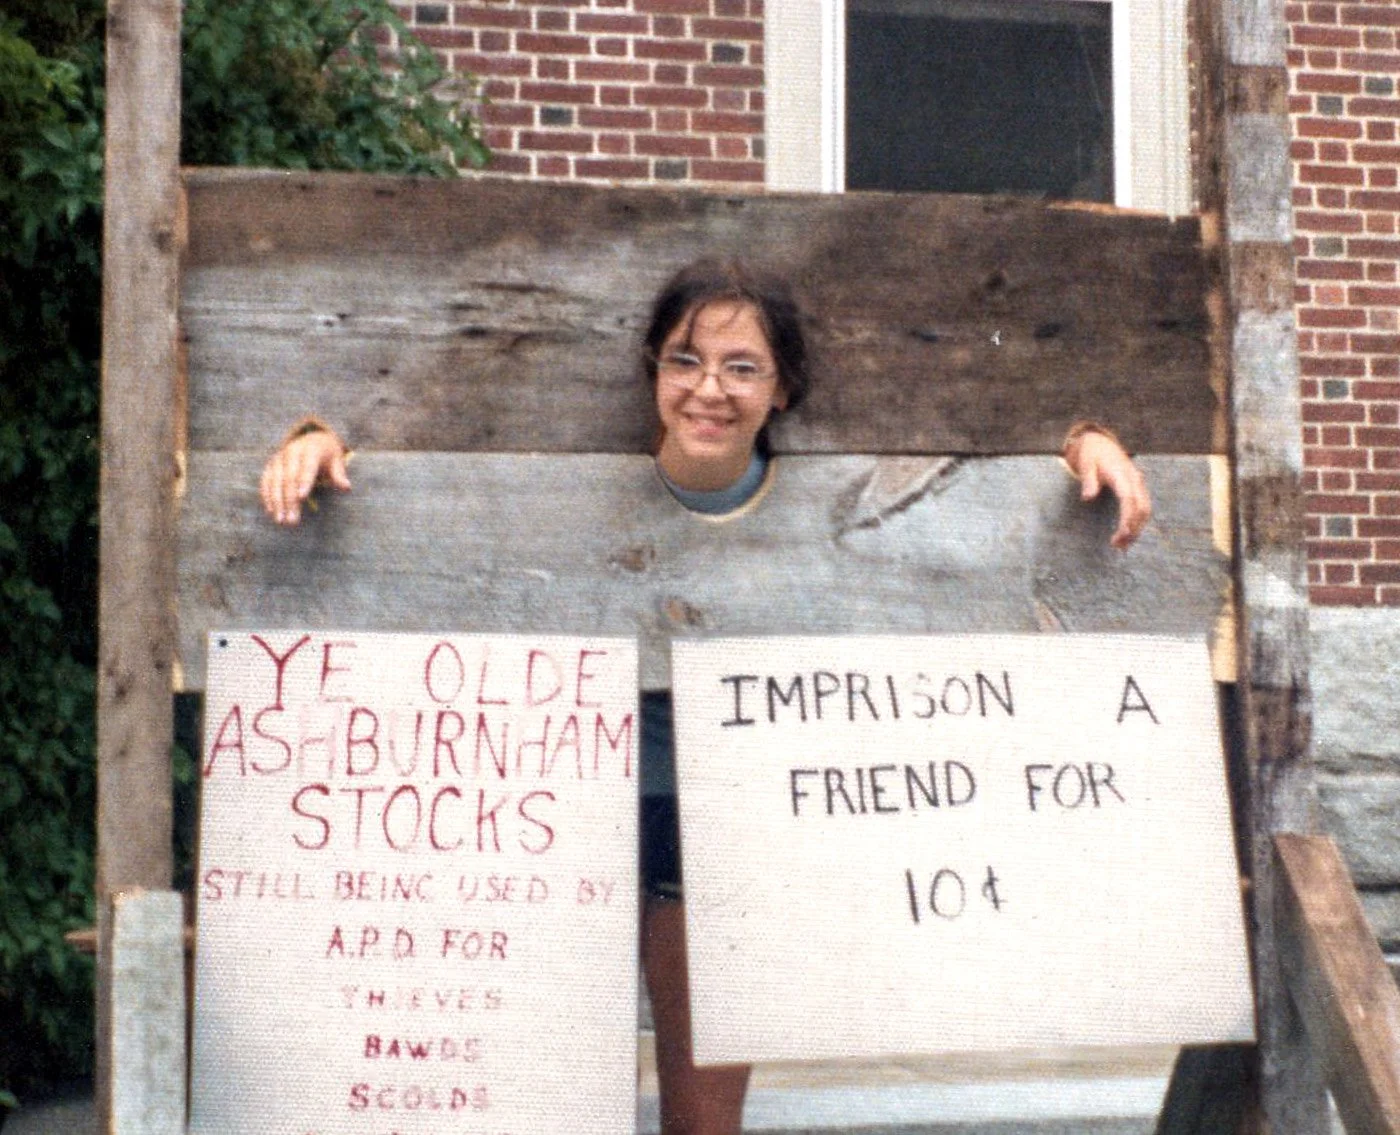 YE OLDE
ASHBURNHAM
STOCKS
STILL BEING USED BY
A.P.D. FOR
THIEVES
BAWDS
SCOLDS
IMPRISON A
FRIEND FOR
10¢